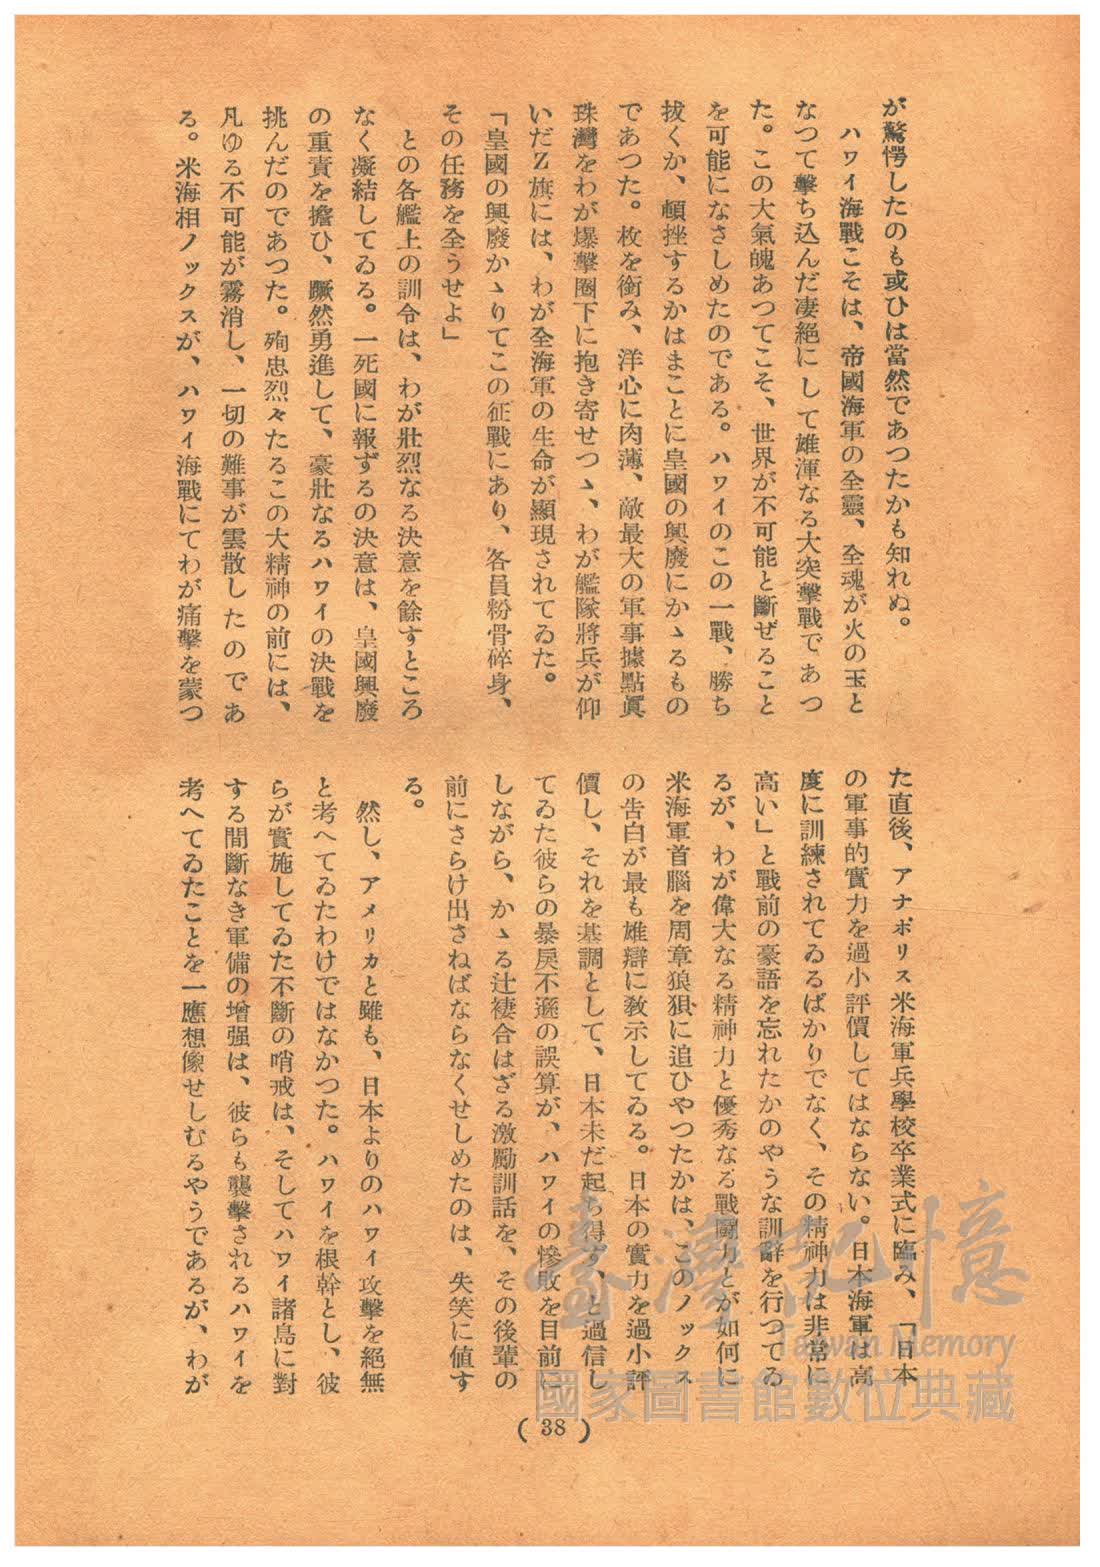 が驚愕したのも或ひは當然であつたかも知れぬ。
ハワイ海戰こそは、帝國海軍の全靈、全魂が火の玉と
なつて擊ち込んだ凄絕にして雄渾なる大突擊戰であつ
た。この大氣魄あつてこそ、世界が不可能と斷ぜること
を可能になさしめたのである。ハワイのこの一戰、勝ち
拔くか、頓挫するかはまことに皇國の興廢にかゝるもの
であつた。枚を銜み、洋心に肉薄、敵最大の軍事據點眞
珠灣をわが爆擊圈下に抱き寄せつゝ、わが艦隊將兵が仰
いだZ旗には、わが全海軍の生命が顯現されてゐた。
「皇國の興廢かゝりてこの征戰にあり、各員粉骨碎身、
その任務を全うせよ」
との各艦上の訓令は、わが壯烈なる決意を餘すところ
なく凝結してゐる。一死國に報ずるの決意は、皇國興廢
の重責を擔ひ、蹶然勇進して、豪壯なるハワイの決戰を
挑んだのであつた。殉忠烈々たるこの大精神の前には、
凡ゆる不可能が霧消し、一切の難事が雲散したのであ
る。米海相ノックスが、ハワイ海戰にてわが痛擊を蒙つ
た直後、アナポリス米海軍兵學校卒業式に臨み、「日本
の軍事的實力を過小評價してはならない。日本海軍は高
度に訓練されてゐるばかりでなく、その精神力は非常に
高い」と戰前の豪語を忘れたかのやうな訓辭を行つてゐ
るが、わが偉大なる精神力と優秀なる戰鬪力とが如何に
米海軍首腦を周章狼狽に追ひやつたかは、このノックス
の告白が最も雄辯に敎示してゐる。日本の實力を過小評
價し、それを基調として、日本未だ起ち得ず、と過信し
てゐた彼らの暴戾不遜の誤算が、ハワイの慘敗を目前に
しながら、かゝる辻褄合はざる激勵訓話を、その後輩の
前にさらけ出さねばならなくせしめたのは、失笑に値す
る。
然し、アメリカと雖も、日本よりのハワイ攻擊を絕無
と考へてゐたわけではなかつた。ハワイを根幹とし、彼
らが實施してゐた不斷の哨戒は、そしてハワイ諸島に對
する間斷なき軍備の增强は、彼らも襲擊されるハワイを
考へてゐたことを一應想像せしむるやうであるが、わが
(38)
臺灣記憶
Taiwan Memory
國家圖書館數位典藏